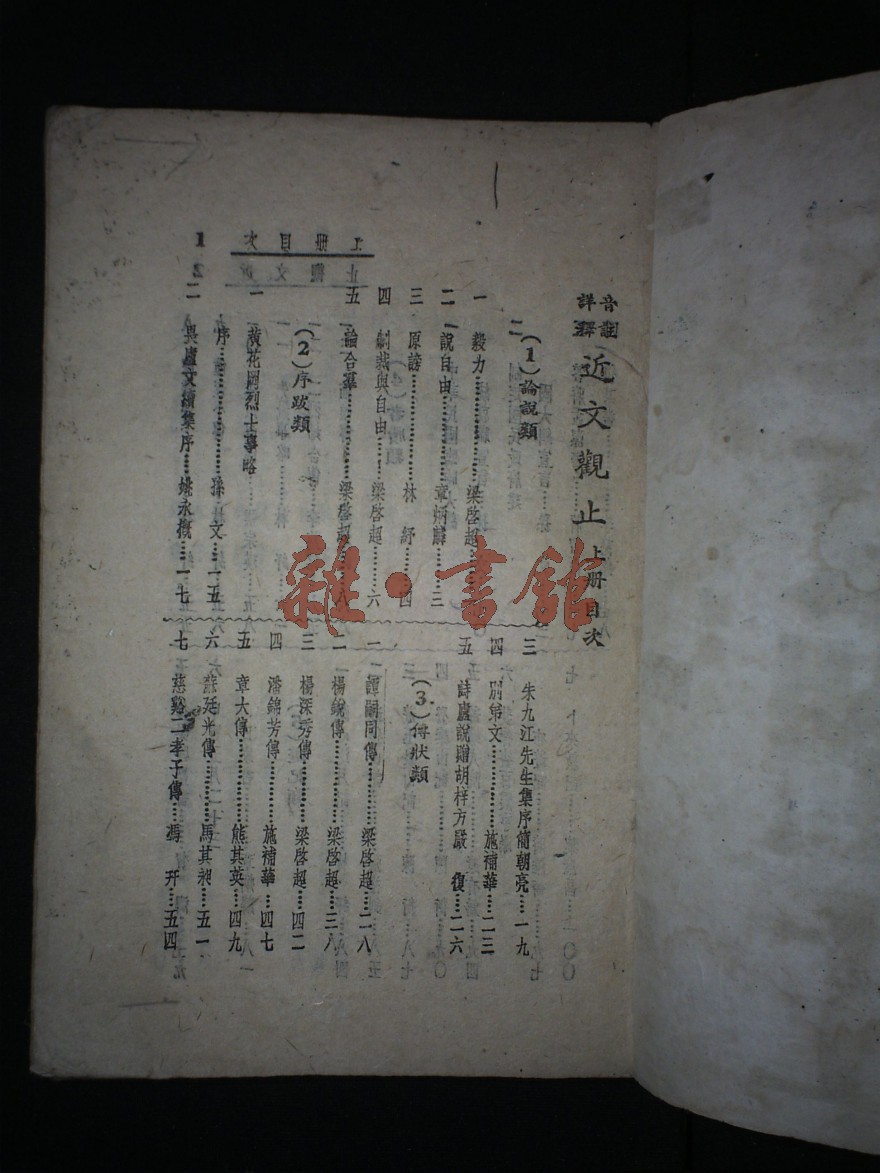 音註
詳釋
近文觀止 上册目次
(1) 論說類
一 毅力……梁啓超…
二 說自由……章炳麟…三
三 原謗……林 紓…四
四 制裁與自由……梁啓超…六
五 論合羣……梁啓超…八
(2) 序跋類
一 黃花岡烈士事略
序……孫 文…一五
二 異廬文續集序…姚永概…一七
三 朱九江先生集序簡朝亮…一九
四 別弟文……施補華…二三
五 詩廬說贈胡梓方嚴 復…二六
(3) 傳狀類
一 譚嗣同傳……梁啓超…二八
二 楊銳傳……梁啓超…三八
三 楊深秀傳……梁啓超…四二
四 潘錦芳傳……施補華…四七
五 章大傳……熊其英…四九
六 蘇廷光傳……馬其昶…五一
七 慈谿二孝子傳…馮 幵…五四
上册目次 1
雜·書館